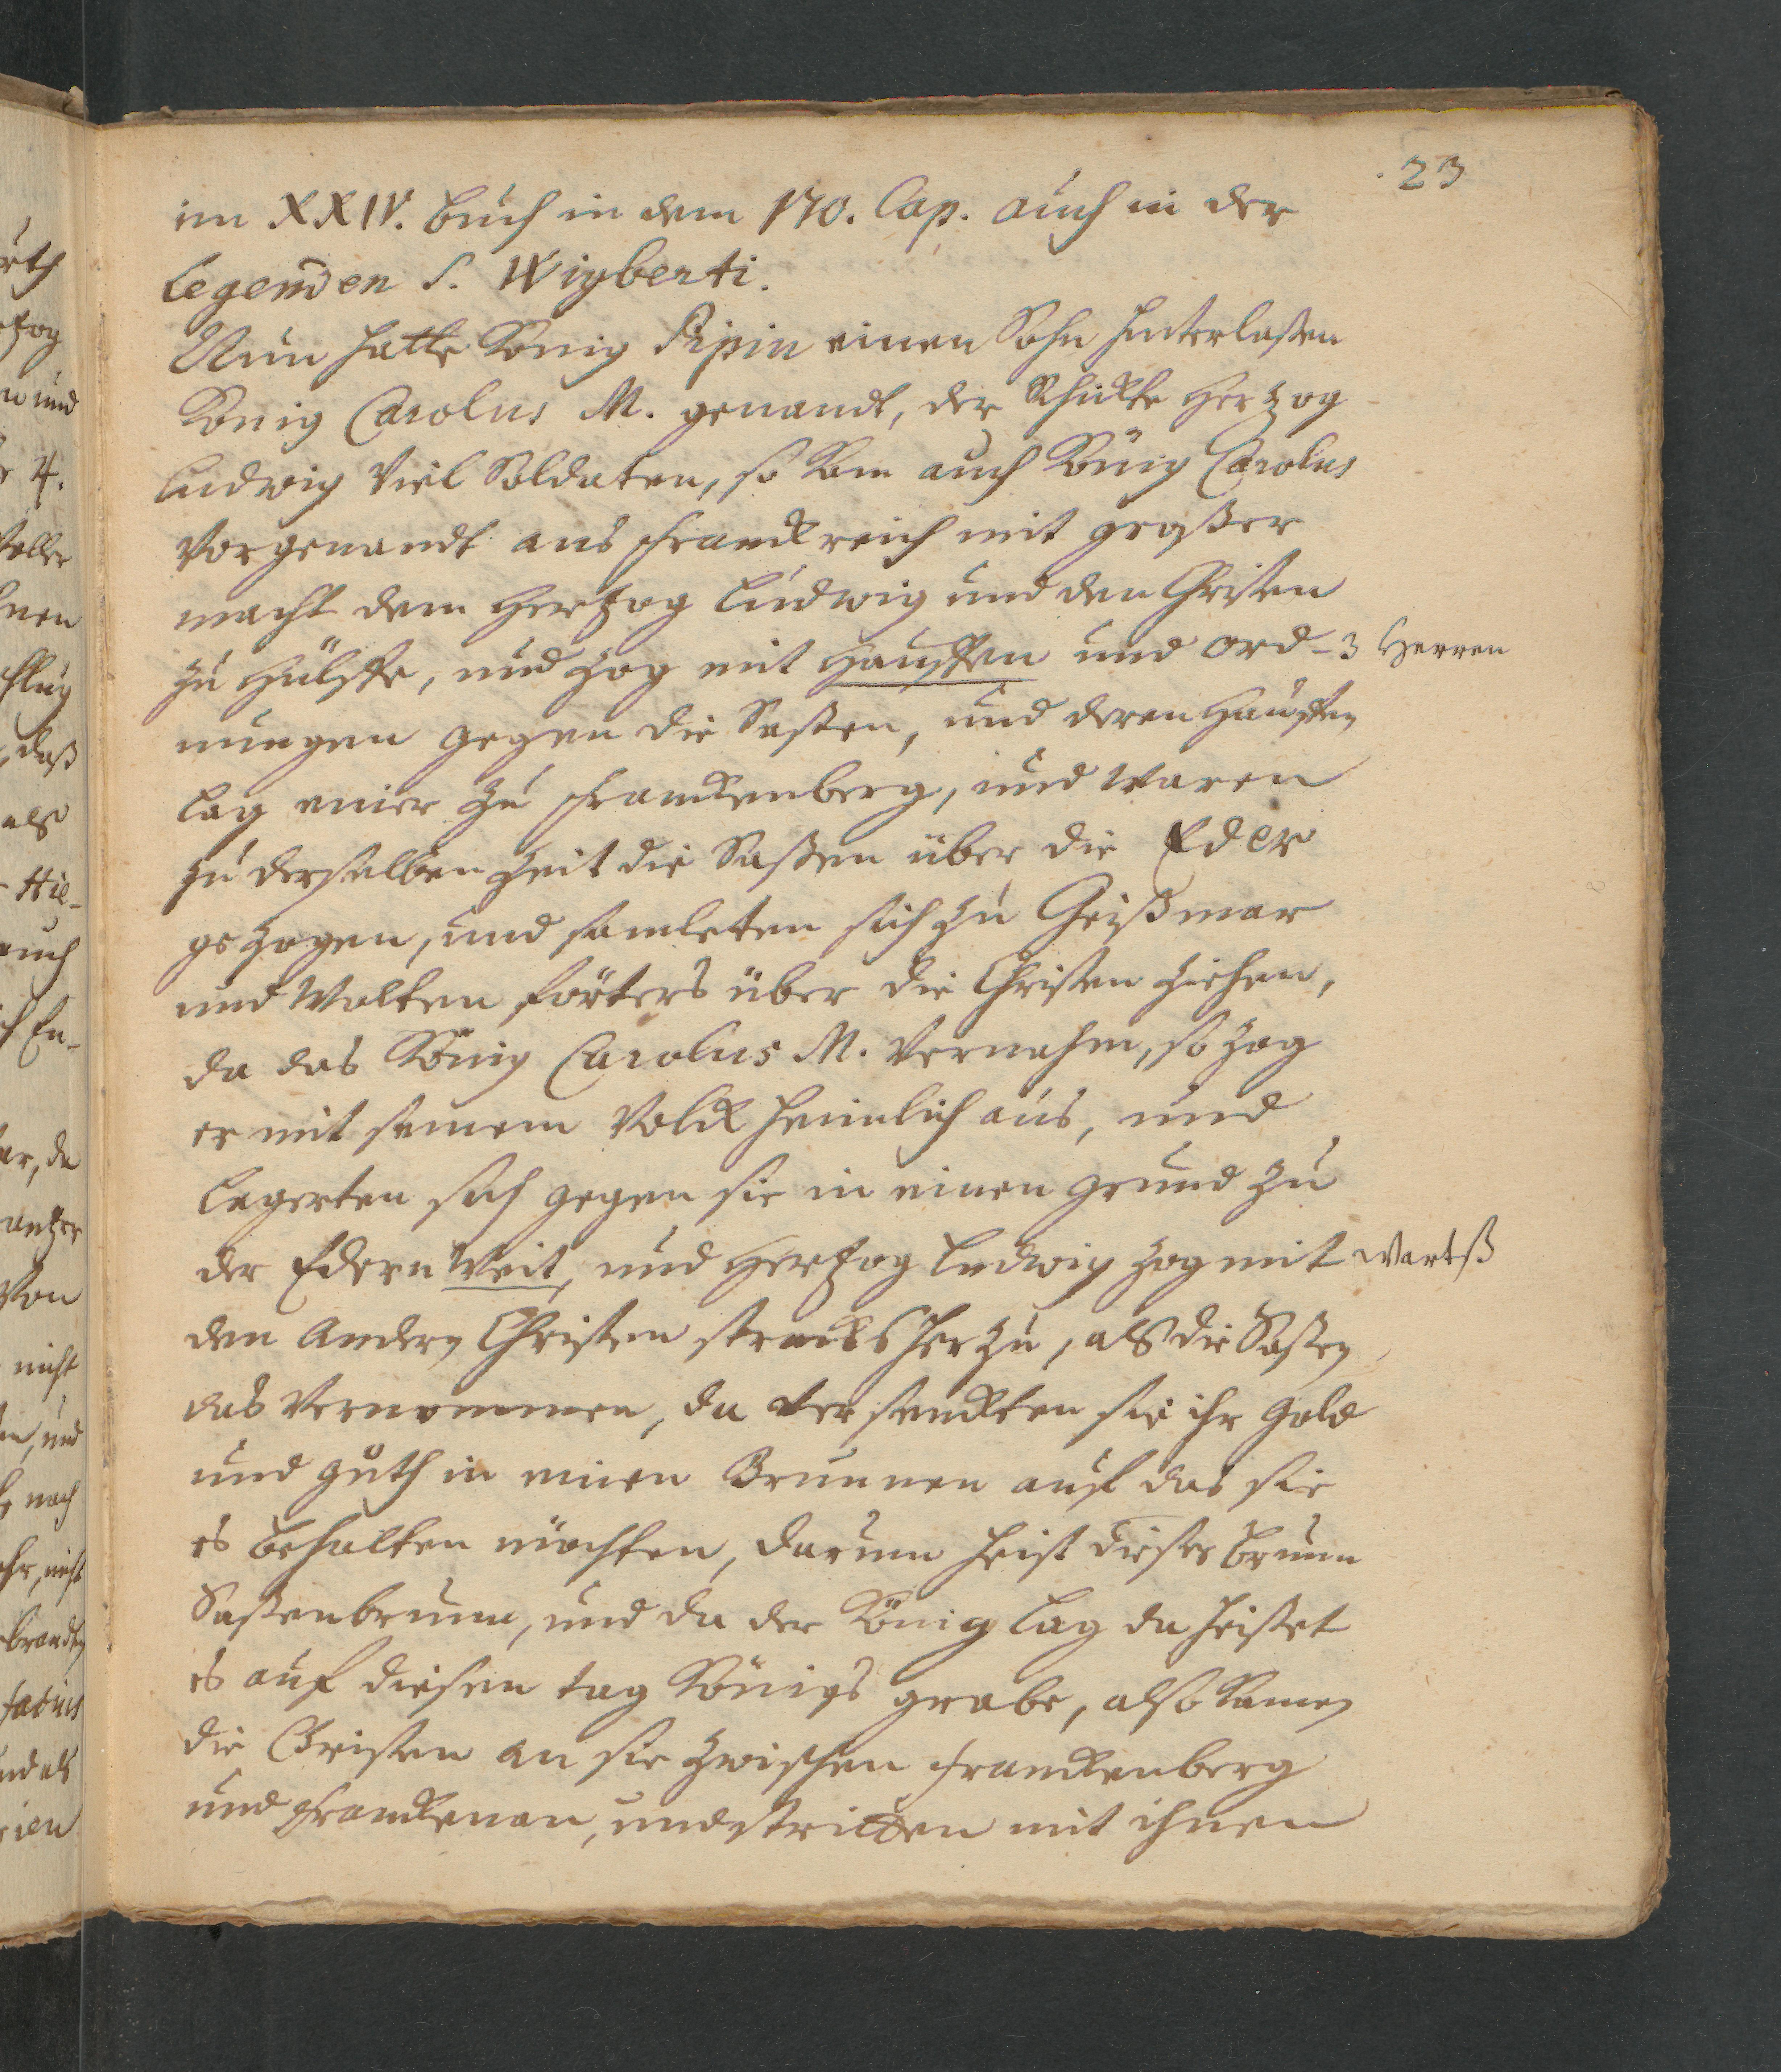 23
im XXIV. buch in dem 170. Cap. auch in der
Legenden S. Wigberti.
Nun hatte König Pipin einen Sohn hinterlaßen
König Carolus M. genandt, der schickte Hertzog
Ludwig viel Soldaten, so kam auch König Carolus
vorgenandt aus Franckreich mit großer
macht dem Hertzog Ludwig und den Christen
zu Hülffe, und zog mit Hauffen und ord- 3 Herren
nungen gegen die Saßen, und deren Hauffen
lag einer zu Franckenberg, und waren
zu derselben Zeit die Saßen über die Eder
gezogen, und samleten sich zu Geißmar
und wolten förters über die Christen ziehen,
da das König Carolus M. vernahm, so zog
er mit seinem Volck heimlich aus, und
lagerten sich gegen sie in einen grund zu
der Edern Weit, und Hertzog Ludwig zog mit wartß
den andern Christen stracks herzu, als die Saßen
das vernommen, da versenckten sie ihr Gold
und guth in einen Brunnen auf das sie
es behalten möchten, darum heist dieser brunn
Saßenbrunn, und da der König lag da heißet
es auf diesen tag Königs grabe, also kamen
die Christen an sie zwischen Franckenberg
und Franckenau, und stritten mit ihnen